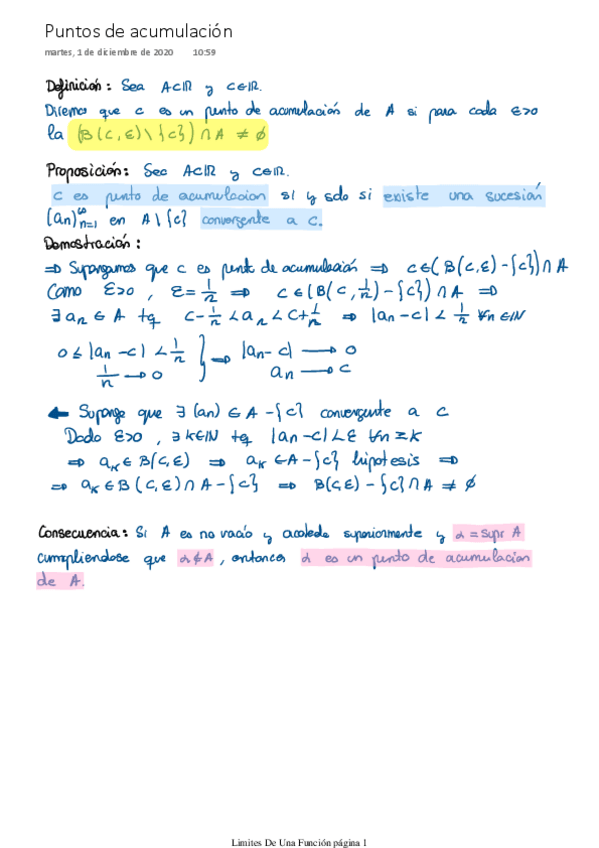 Puntos de acumulación
martes, 1 de diciembre de 2020 10:59
Definición: Sea A⊂ℝ y c∈ℝ.
Diremos que c es un punto de acumulación de A si para cada ε>0
la (B(c,ε)\{c})∩A ≠ ∅
Proposición: Sea A⊂ℝ y c∈ℝ.
c es punto de acumulacion si y solo si existe una sucesión
(an)∞n=1 en A\{c} convergente a c.
Demostración:
⇒ Supongamos que c es punto de acumulación ⇒ c∈(B(c,ε)-{c})∩A
Como ε>0, ε=1/n ⇒ c∈(B(c,1/n)-{c})∩A ⇒
∃ an ∈ A tq c-1/n < an < c+1/n ⇒ |an-c| < 1/n ∀n∈ℕ
0 ≤ |an-c| < 1/n } → |an-c| → 0
1/n → 0 an → c
⇐ Supongo que ∃ (an) ∈ A-{c} convergente a c
Dado ε>0, ∃ k∈ℕ tq |an-c|<ε ∀n≥k
⇒ ak∈B(c,ε) ⇒ ak∈A-{c} hipotesis ⇒
⇒ ak∈B(c,ε)∩A-{c} ⇒ B(c,ε)-{c}∩A ≠ ∅
Consecuencia: Si A es no vacío y acotado superiormente y α = supr A
cumpliendose que α∉A, entonces α es un punto de acumulacion
de A.
Limites De Una Función página 1